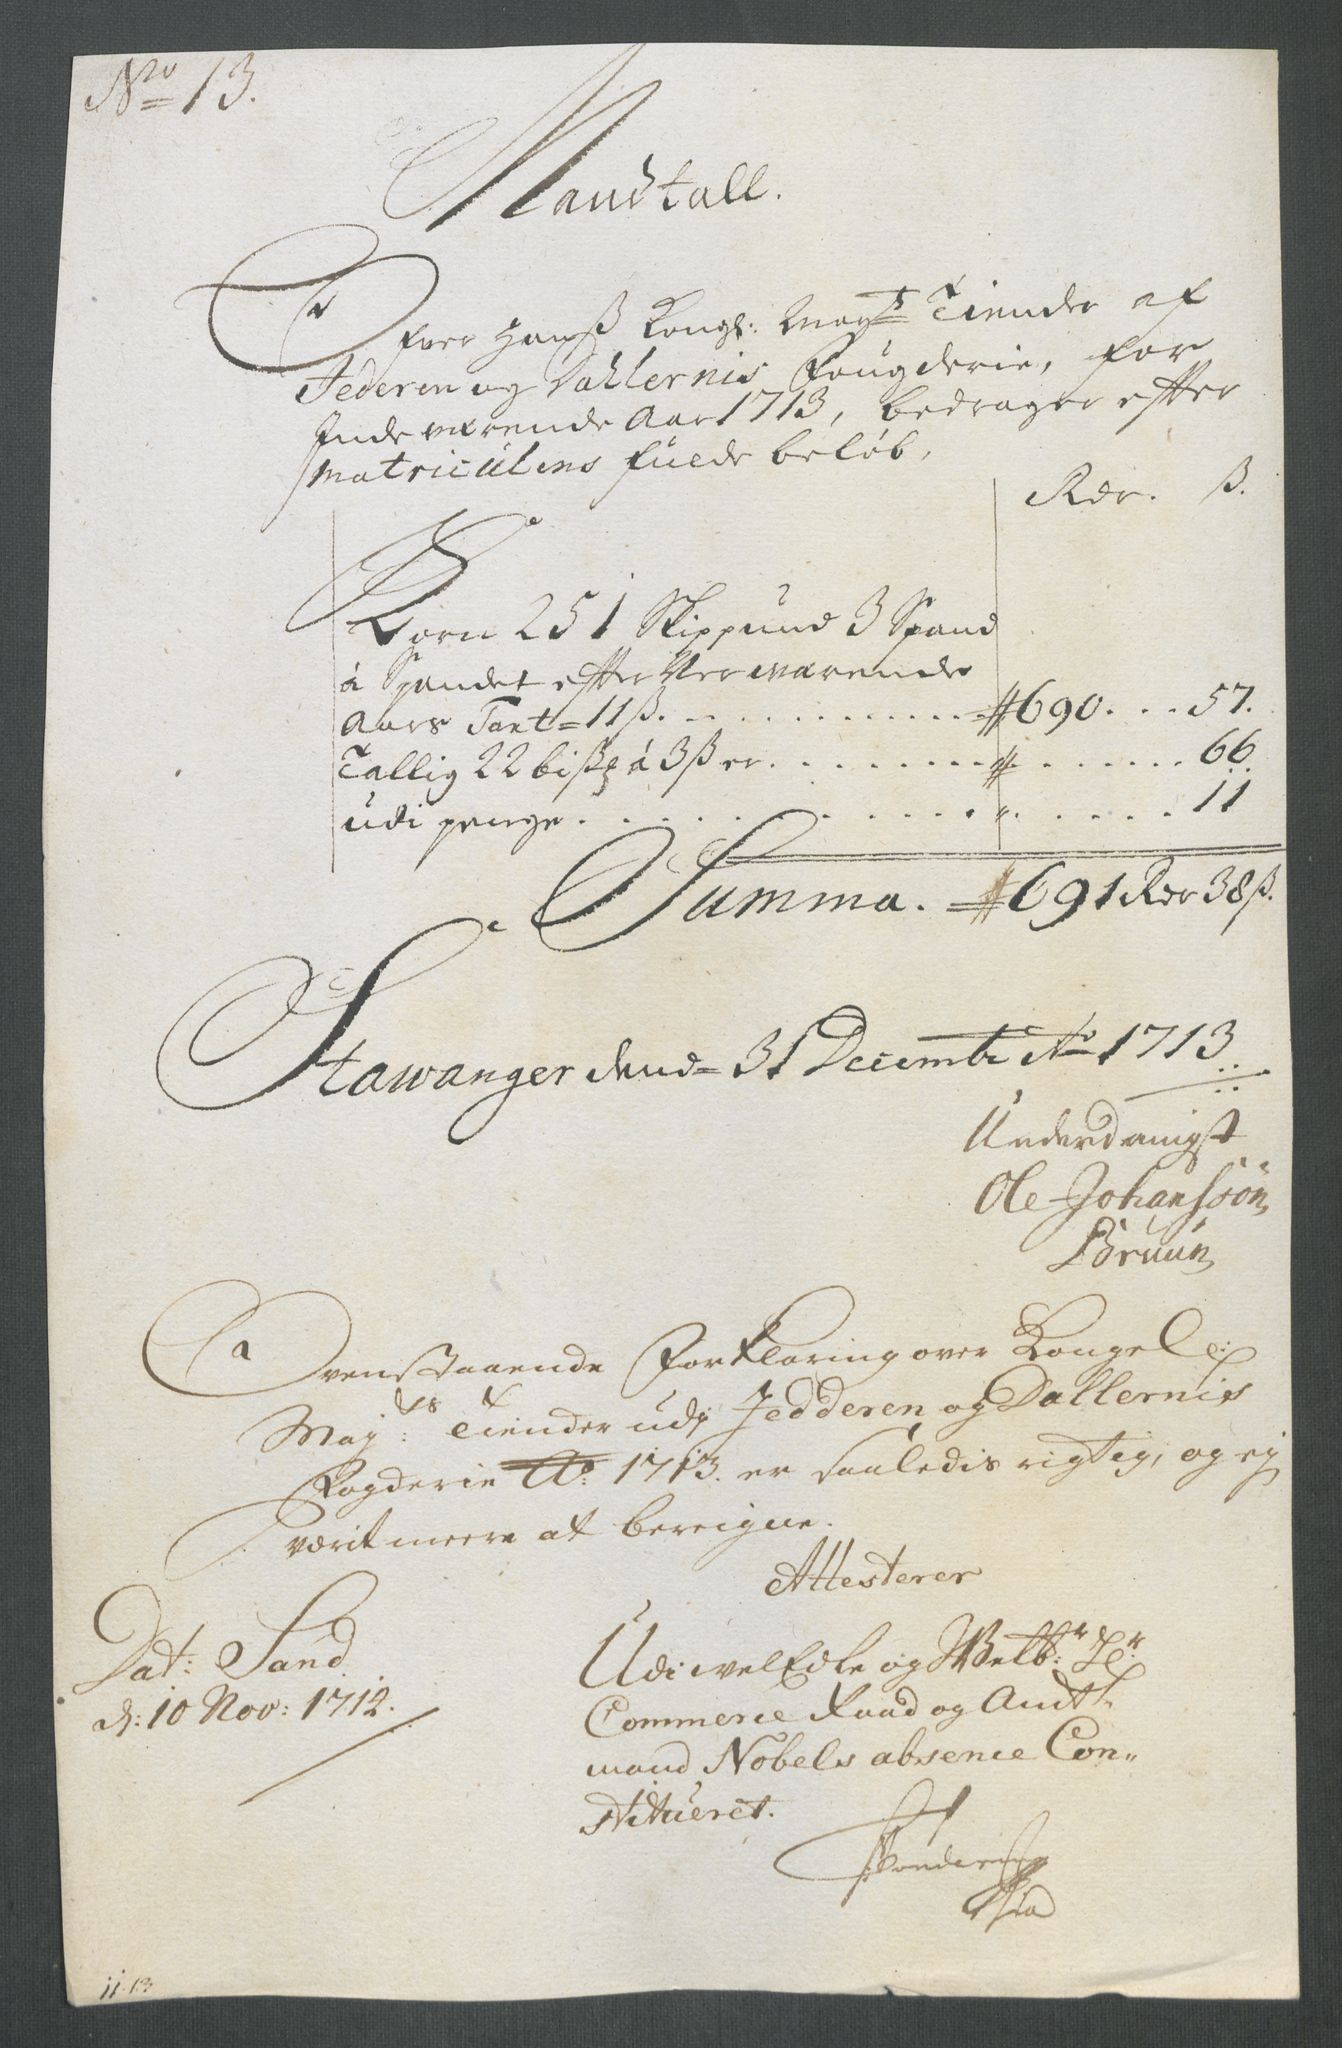 No 13.
Mandtall.
Ofver Hanß Kongl: Mayts Tiender af
Jederen og Dallernis Fougderie, for
Inde værende Aar 1713, bedrager efter
Matriculens fulde beløb,
Rdr. ß.
Korn 251 Skippund 3 Spand
á Spandet efter Nerværende
Aars Taxt 11 ß. 690. 57.
Tallig 22 á 3 ß er 66
udi penge. 11
Summa. 691 Rdr 38 ß.
Stawanger dend 31 Decembr Ao 1713
Underdanigst
Ole Johanssön
Bruun
Ovenstaaende Forklaring over Kongel:
Mayts: Tiender udj Jedderen og Dallernis
Fogderie Ao 1713. er saaledis rigtig, og ej
værit meere at bereigne.
Attesterer
Dat: Sand
d: 10 Nov: 1712.
Udi welEdle og Welb:r Hr:
Commerce Raad og Amdt
mand Nobels absence Con„
stitueret.
11 13